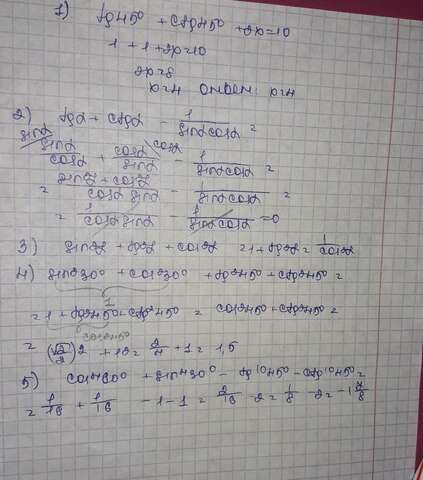 1) tg45° + ctg45° + 2x=10
1 + 1 + 2x=10
2x=8
x=4 ответ: x=4
2) tgα + ctgα - 1/sinαcosα =
sinα/cosα + cosα/sinα - 1/sinαcosα =
= sin²α + cos²α/cosα sinα - 1/sinαcosα =
= 1/cosα sinα - 1/sinαcosα =0
3) sin²α + tg²α + cos²α = 1 + tg²α = 1/cos²α
4) sin²30° + cos²30° + tg²45° + ctg²45° =
1
= 1 + tg²45° + ctg²45° = cos²45° + ctg²45° =
cos²45°
= (√2/2)2 + 12 = 2/4 + 1 = 1,5
5) cos⁴60° + sin⁴30° - tg¹⁰45° - ctg¹⁰45° =
= 1/16 + 1/16 - 1 - 1 = 2/16 - 2 = 1/8 - 2 = -1 7/8